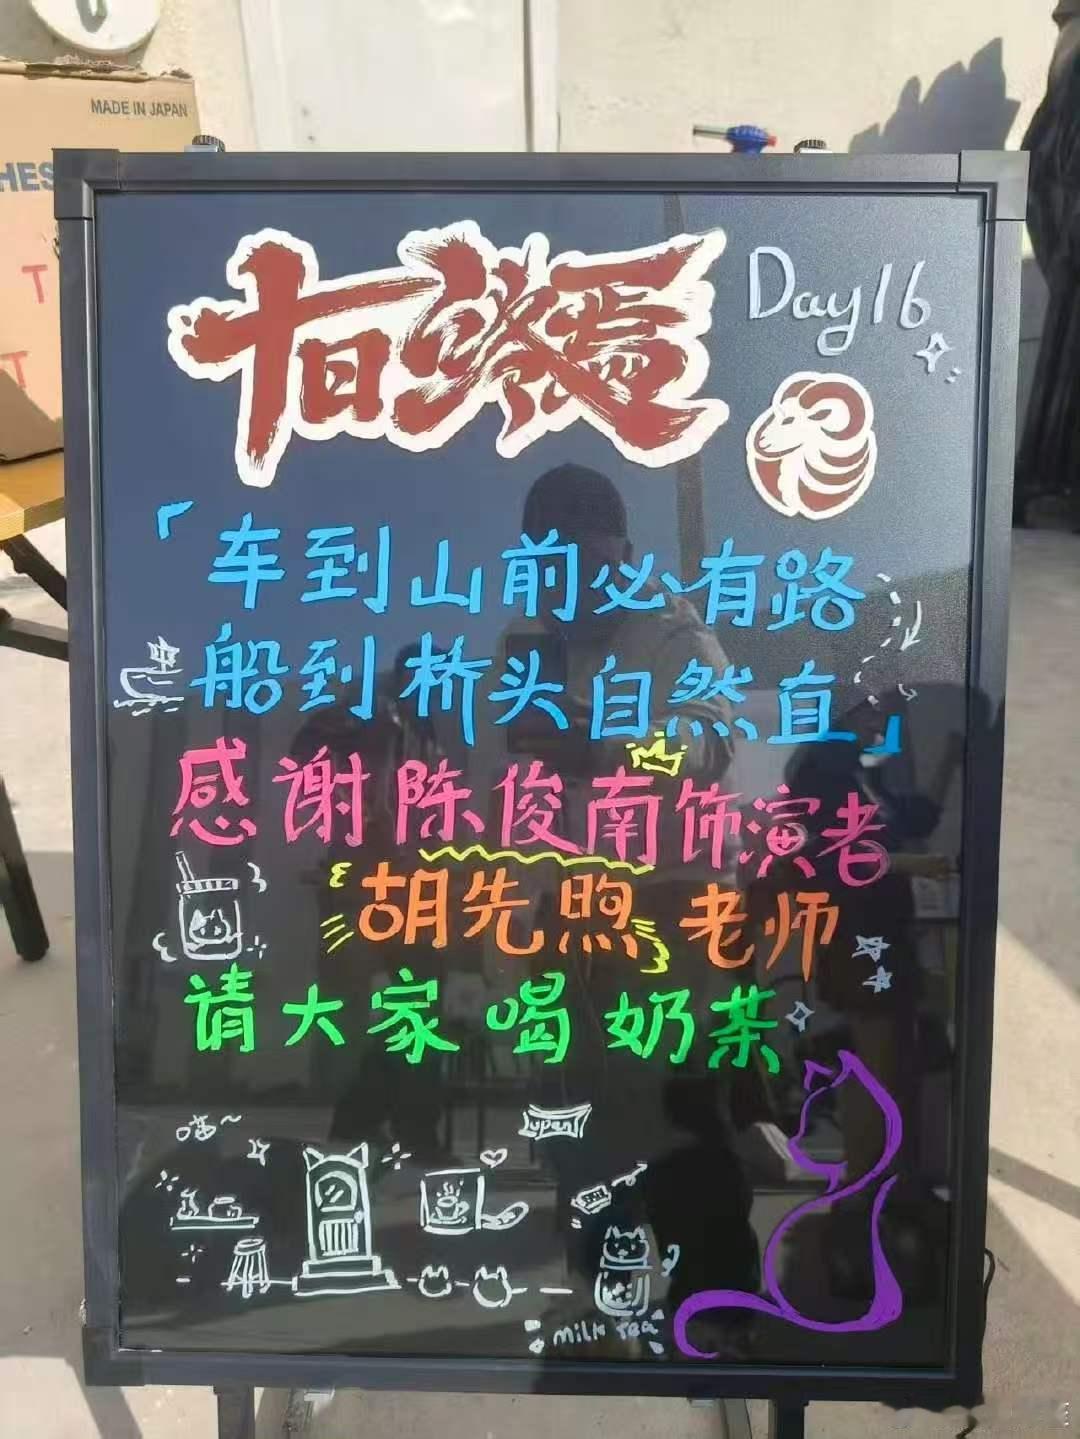 MADE IN JAPAN
HES
T
T
十日终焉
Day16
「车到山前必有路
船到桥头自然直」
感谢陈俊南饰演者
胡先煦老师
请大家喝奶茶
喵~
open
milk tea